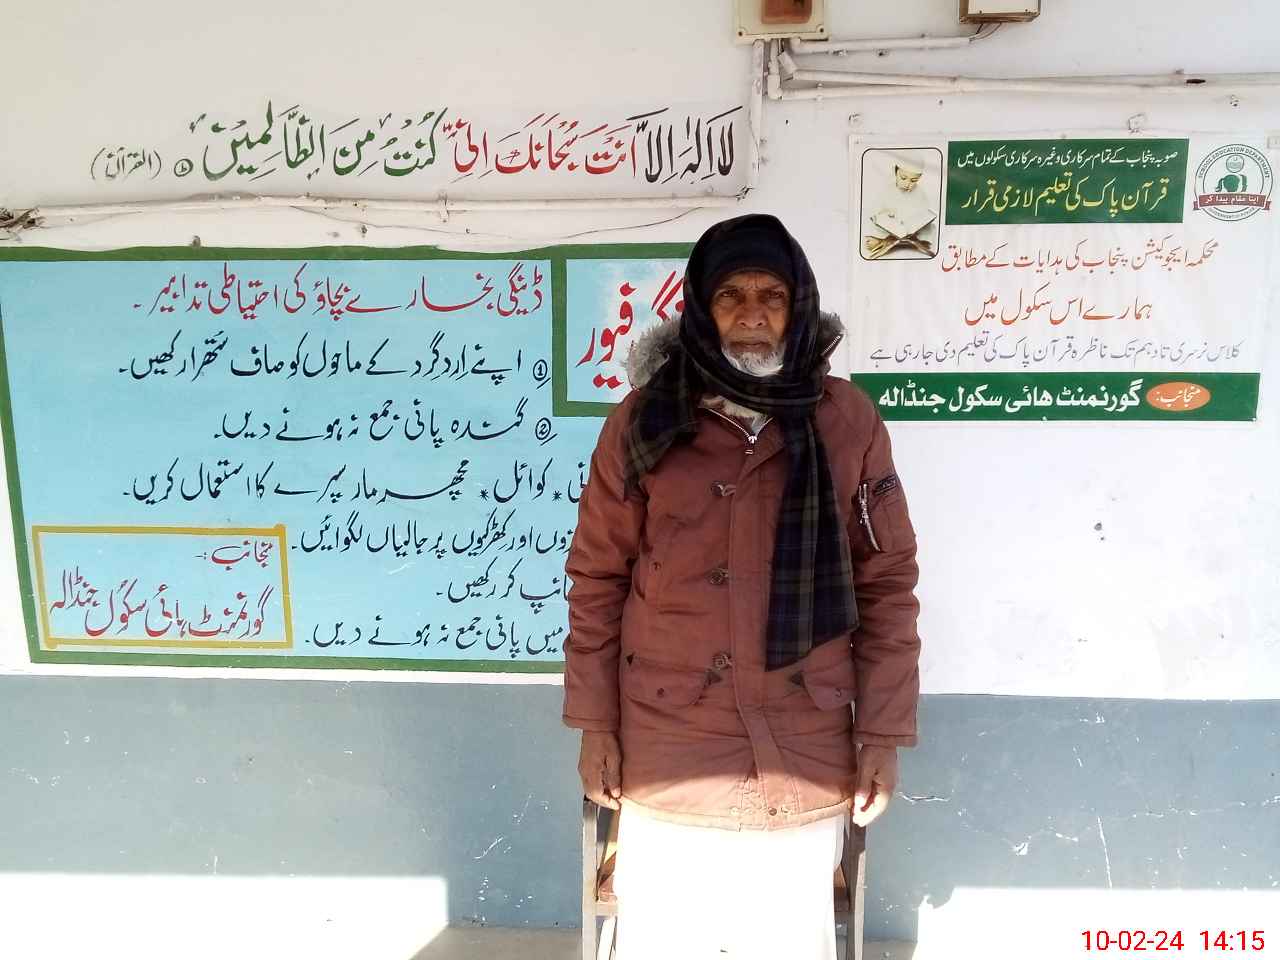 لَا اِلٰهَ اِلَّا اَنْتَ سُبْحَانَكَ اِنِّیْ كُنْتُ مِنَ الظَّالِمِيْنَ (القرآن)
ڈینگی بخار سے بچاؤ کی احتیاطی تدابیر۔
فیور
① اپنے اِردگِرد کے ماحول کو صاف ستھرا رکھیں۔
② گندہ پانی جمع نہ ہونے دیں۔
* کوائل * مچھر مار سپرے کا استعمال کریں۔
اور کھڑکیوں پر جالیاں لگوائیں۔
کر رکھیں۔
میں پانی جمع نہ ہونے دیں۔
منجانب:-
گورنمنٹ ہائی سکول جنڈالہ
صوبہ پنجاب کے تمام سرکاری وغیرہ سرکاری سکولوں میں
قرآن پاک کی تعلیم لازمی قرار
SCHOOL EDUCATION DEPARTMENT
اپنا مقام پیدا کر
محکمہ ایجوکیشن پنجاب کی ہدایات کے مطابق
ہمارے اس سکول میں
کلاس نرسری تا دہم تک ناظرہ قرآن پاک کی تعلیم دی جا رہی ہے
منجانب: گورنمنٹ ھائی سکول جنڈالہ
10-02-24 14:15